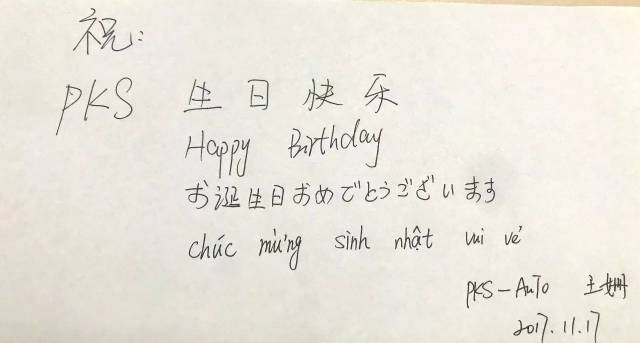 祝:
PKS 生日快乐
Happy Birthday
お誕生日おめでとうございます
chúc mừng sinh nhật vui vẻ
PKS-AuTo 王姗
2017.11.17